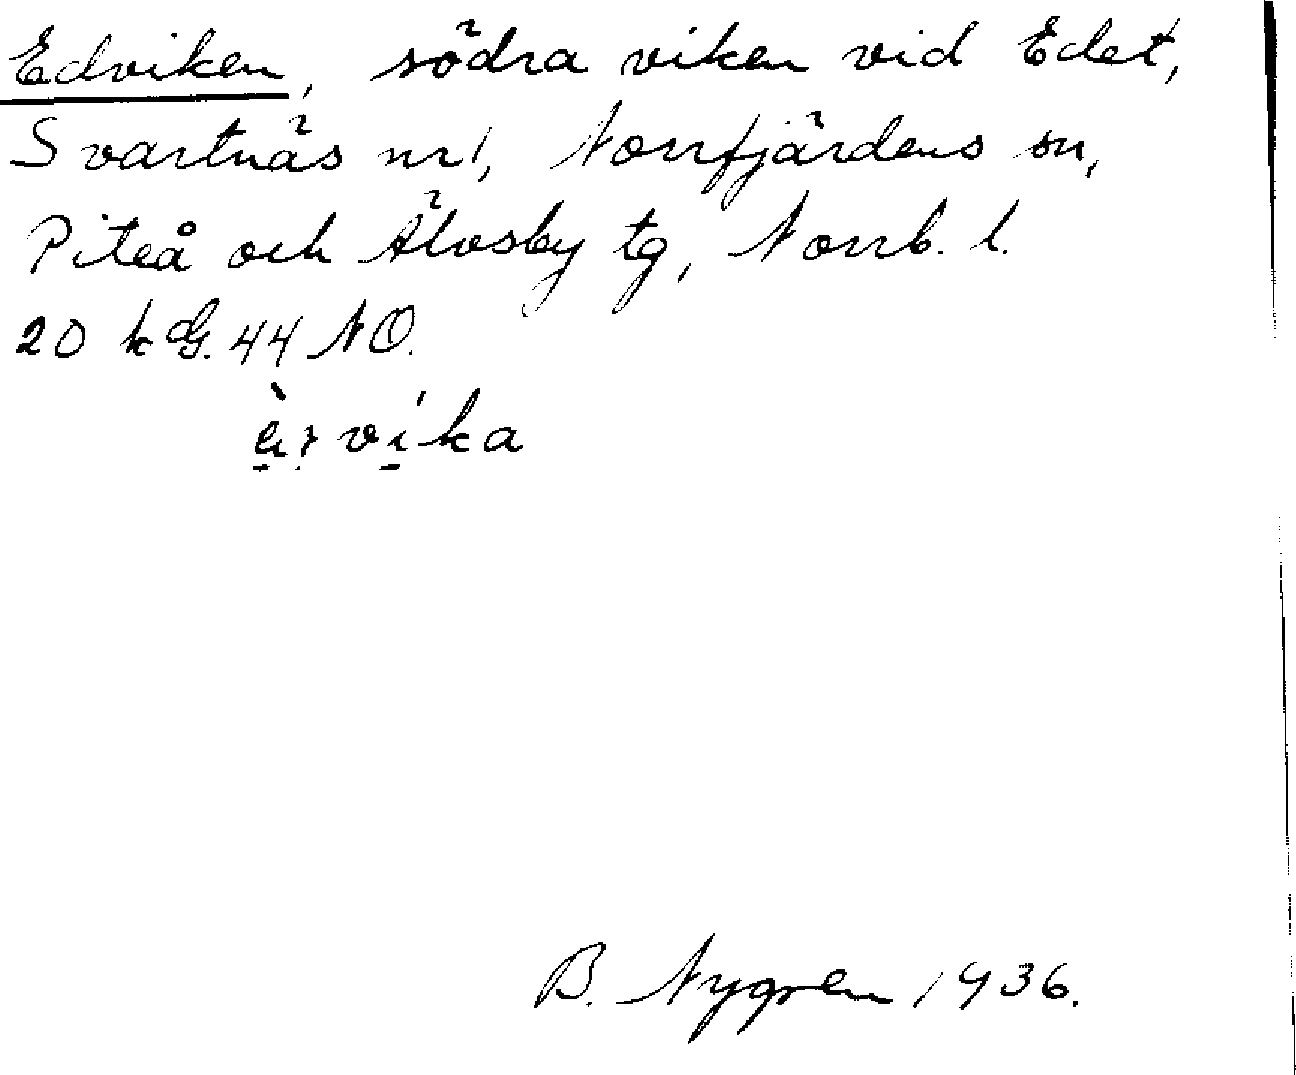 Edviken, södra viken vid Edet,
Svartnäs nr 1, Norrfjärdens sn,
Piteå och Älvsby tg, Norrb. l.
20 k G. 44 NO.
vika
B. Nygren 1936.